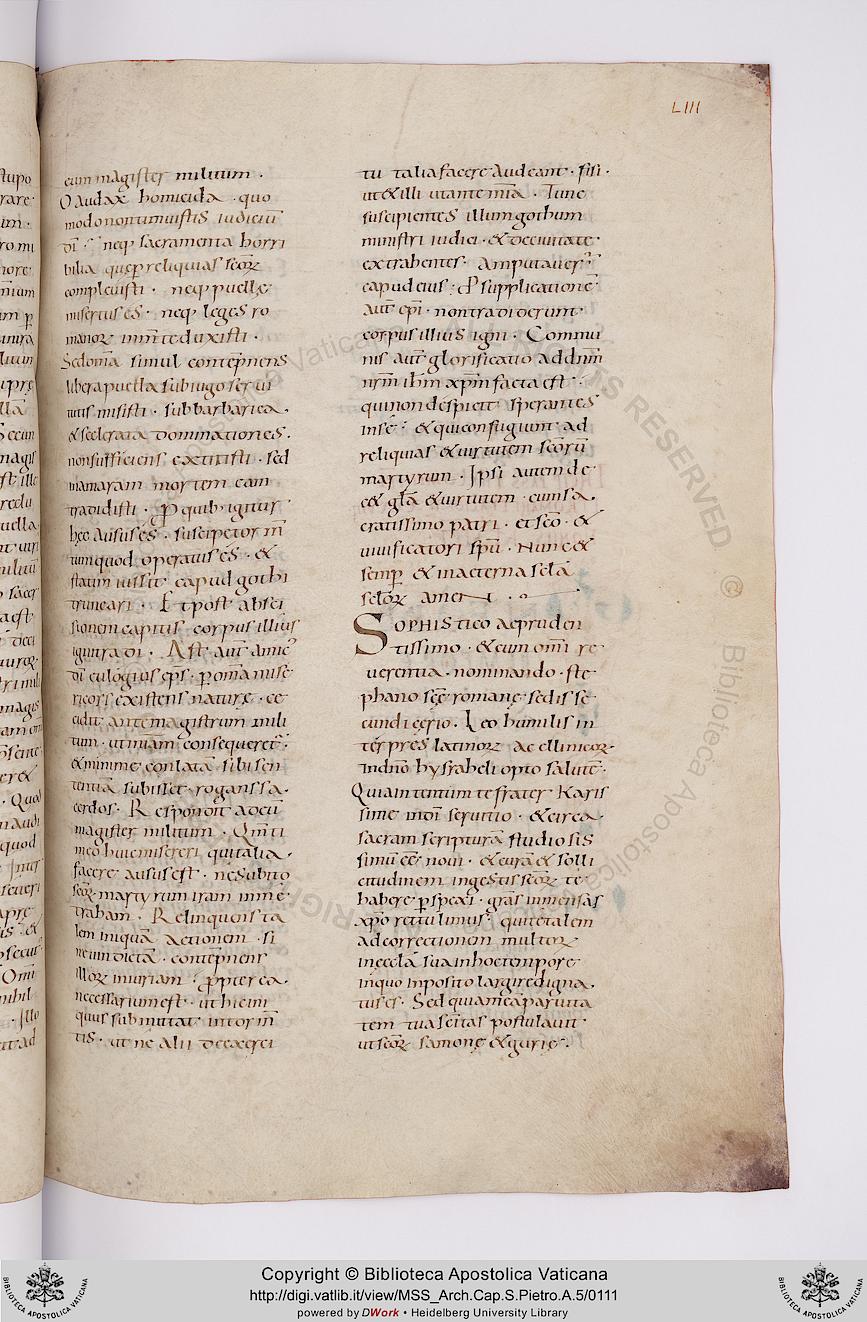 LIII
cum magister militum ·
O audax homicida · quo
modo non timuisti iudiciū
dī · neq; sacramenta horri
bilia que p reliquias scōꝝ
complevisti · neq; puelle
misertus es · neq; leges ro
manoꝝ in mte duxisti ·
Sed omia simul contēpnens
libera puella sub iugo servi
tutis misisti · sub barbarica ·
& scelerata dominationes ·
non sufficiens extitisti · sed
in amaram mortem eam
tradidisti · Pro quib; igitur
hęc ausus es · suscipe tormī
tum quod operatus es · &
statim iussit capud gothi
truncari · Et post absci
sionem capitis corpus illius
igni tradi · Ast aut amic
dī eulogius eps · p omia mise
ricors existens nature · ce
cidit ante magistrum mili
tum · ut miam consequeret ·
& minime conlatā sibi sen
tentiā subisset · rogans sa
cerdos · Respondit ad eū
magister militum · Qmti
meo huic misereri qui talia ·
facere ausus est · ne subito
scōꝝ martyrum iram in me
traham · Relinquens ta
lem iniquā actionem · si
ne vindicta · contēpnens
illoꝝ iniuriam · propterea ·
necessarium est · ut hic ini
quus submittat in torm
tis · ut ne alii deexerci
tu talia facere audeant · sisi ·
ut & illi vitant emīa · Tunc
suscipientes illum gothum
ministri iudici · & de civitate ·
extrahentes · amputaver
capud eius · & supplicatione
aut epi · non tradiderunt ·
corpus illius igni · Commu
nis aut glorificatio ad dnm
nrm ihm xpm facta est ·
qui non despicit sperantes
in se · & qui confugiunt ad
reliquias & virtutem scōrū
martyrum · Ipsi autem de
c& glā & virtutem · cum sa ·
cratissimo patri · et scō · &
vivificatori spū · Nunc &
semp & in aeterna sclā
sclōꝝ amen ·
SOPHISTICO ac pruden
tissimo · & cum omi re
verentia · nominando · ste
phano scę romanę sedis se
cundicerio · Leo humilis in
terpres latinoꝝ ac ellinicoꝝ ·
In dno hysraheli opto salutē ·
Quia intentum te frater karis
sime in dī servitio · & circa ·
sacram scripturā studiosis
simū eē novi · & curā & solli
citudinem in gestis scōꝝ te
habere pspexi · gras immensas
xpo rettulimus · qui te talem
ad correctionem multoꝝ
in ecclā sua in hoc tempore
iniquo inposito largire digna ·
tus es · Sed quia mea parvita
tem tua scitas postulavit
ut scōꝝ samonę & gurię ·
Copyright © Biblioteca Apostolica Vaticana
http://digi.vatlib.it/view/MSS_Arch.Cap.S.Pietro.A.5/0111
powered by DWork • Heidelberg University Library